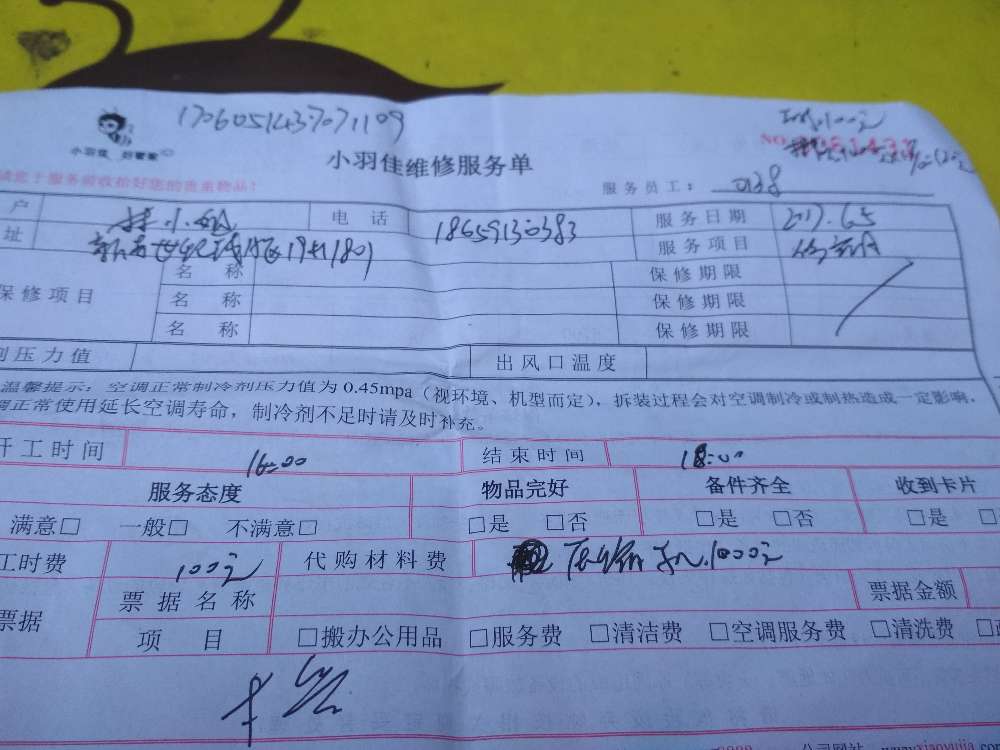 1706051437071109
小羽佳 好管家
小羽佳维修服务单
NO
100元
服务员工： 0138
户 小姐 电话 18659130383 服务日期 2017.6.5
址 19#1801 服务项目
保修项目 名称 保修期限
名称 保修期限
名称 保修期限
剂压力值 出风口温度
温馨提示：空调正常制冷剂压力值为 0.45mpa（视环境、机型而定），拆装过程会对空调制冷或制热造成一定影响，
调正常使用延长空调寿命，制冷剂不足时请及时补充。
开工时间 16:00 结束时间 18:00
服务态度 物品完好 备件齐全 收到卡片
满意□ 一般□ 不满意□ □是 □否 □是 □否 □是 □
工时费 100元 代购材料费 1000元
票据 票据名称 票据金额
项目 □搬办公用品 □服务费 □清洁费 □空调服务费 □清洗费